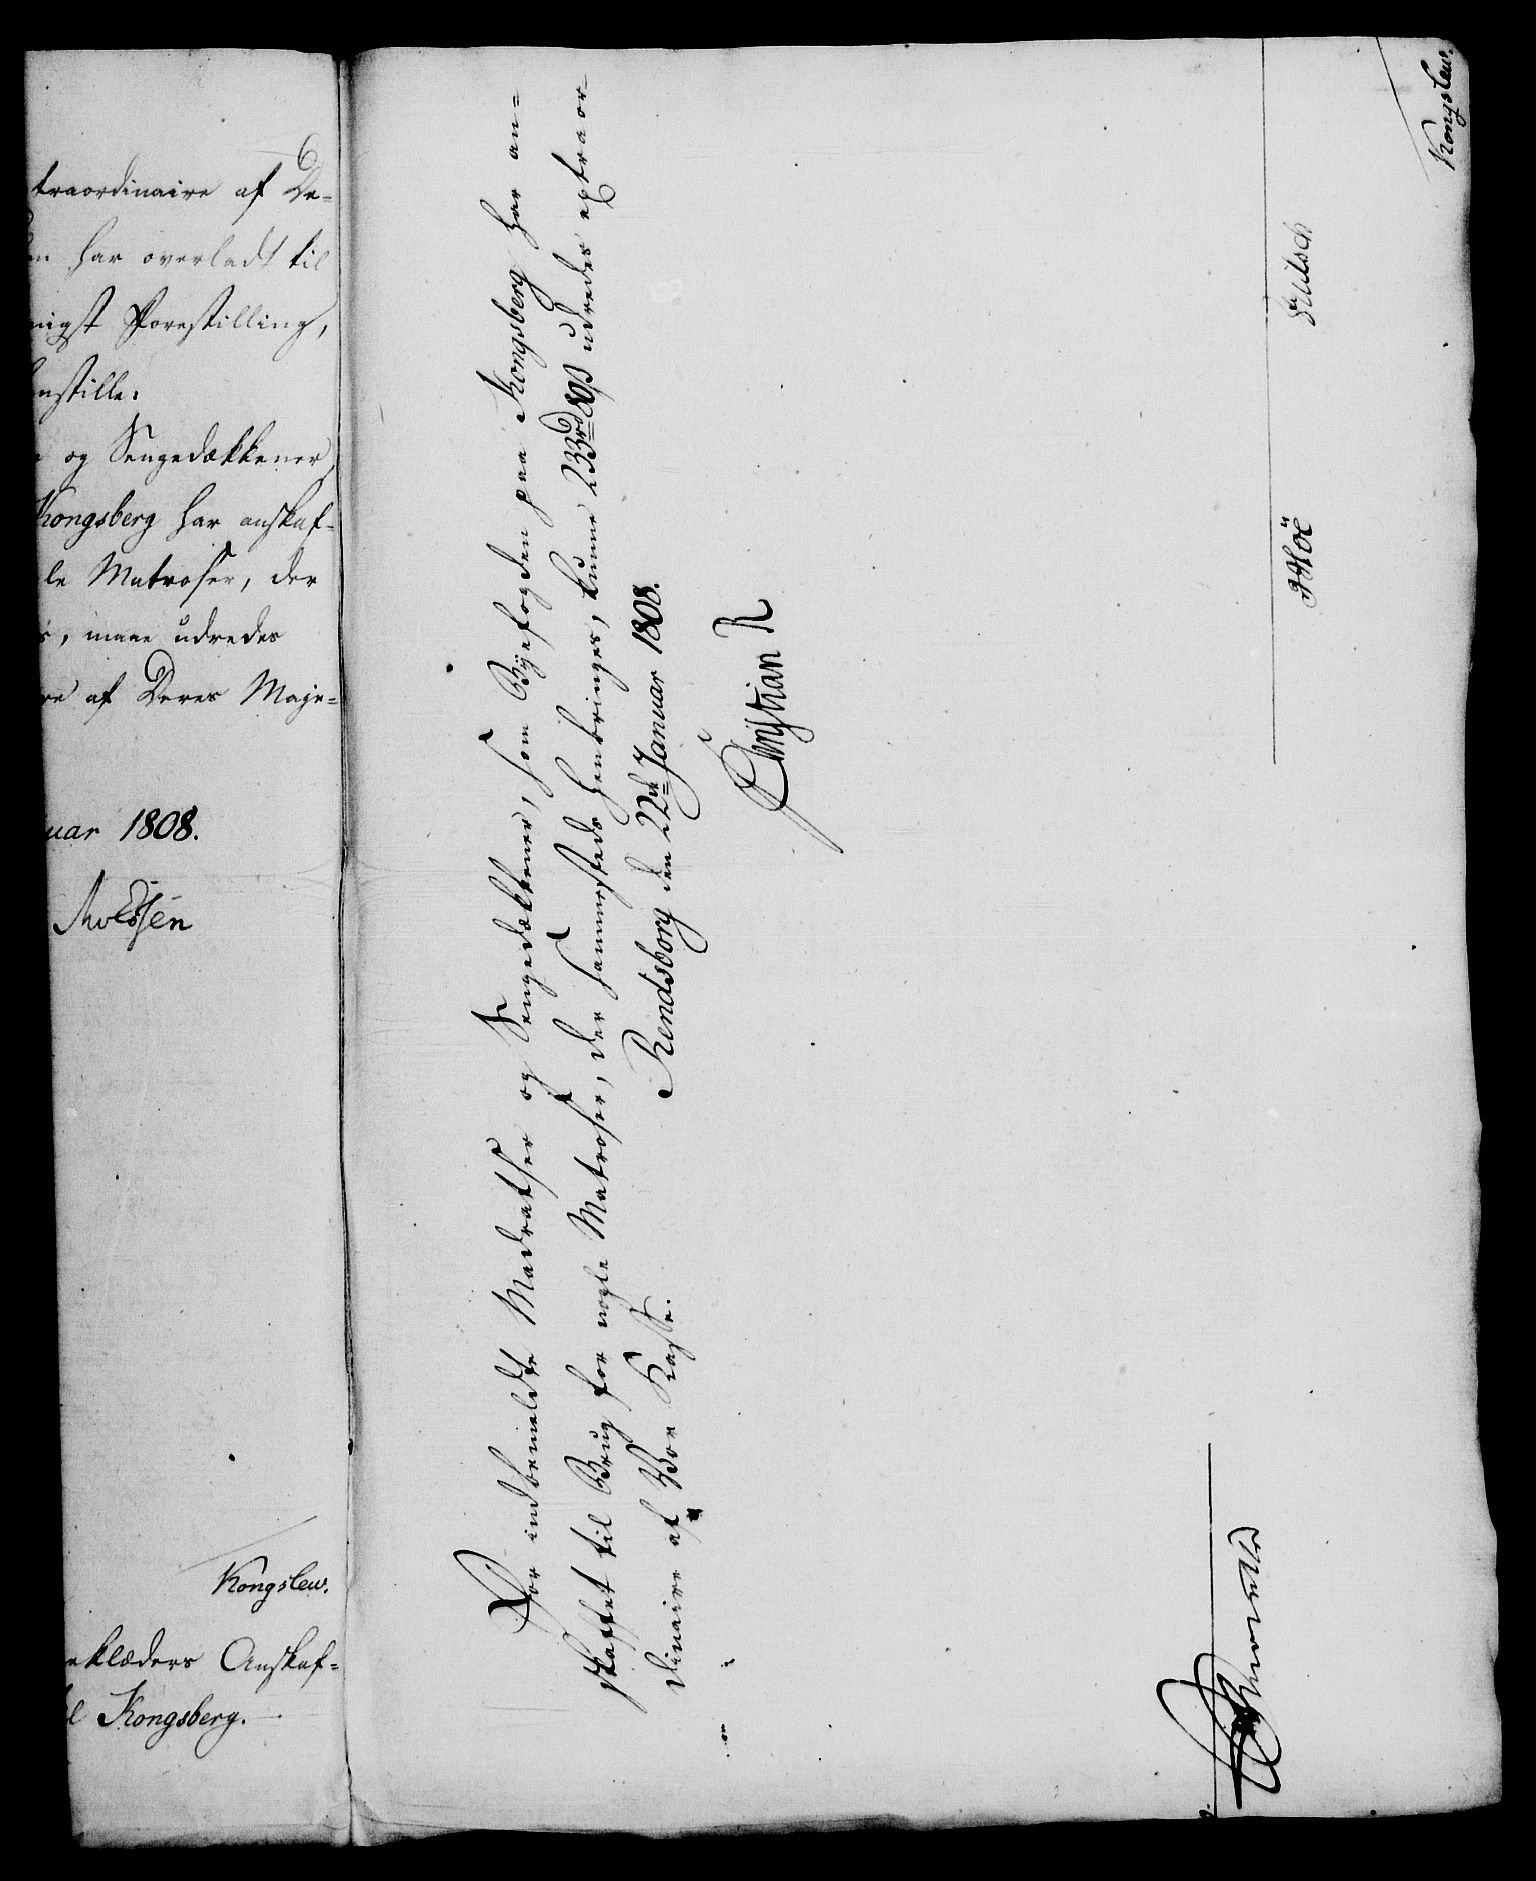 traordinaire af De-
har overladt til
nigst Forestilling,
nstille:
og Sengedækkener
Kongsberg har anskaf-
le Matroser, der
maae udredes
re af Deres Maje-
uar 1808.
Kongslew.
eklæders Anskaf-
til Kongsberg.
For indbemeldte Madratser og Sengedækkener, som Byefogden paa Kongsberg har an-
skaffet til Brug for nogle Matroser, der sammesteds henbringes, kunne 233 rd 80 ß udredes extraor-
dinaire af Vor Kasse. Rendsborg den 22de Januar 1808.
Christian R
JHöe
Kongslew.